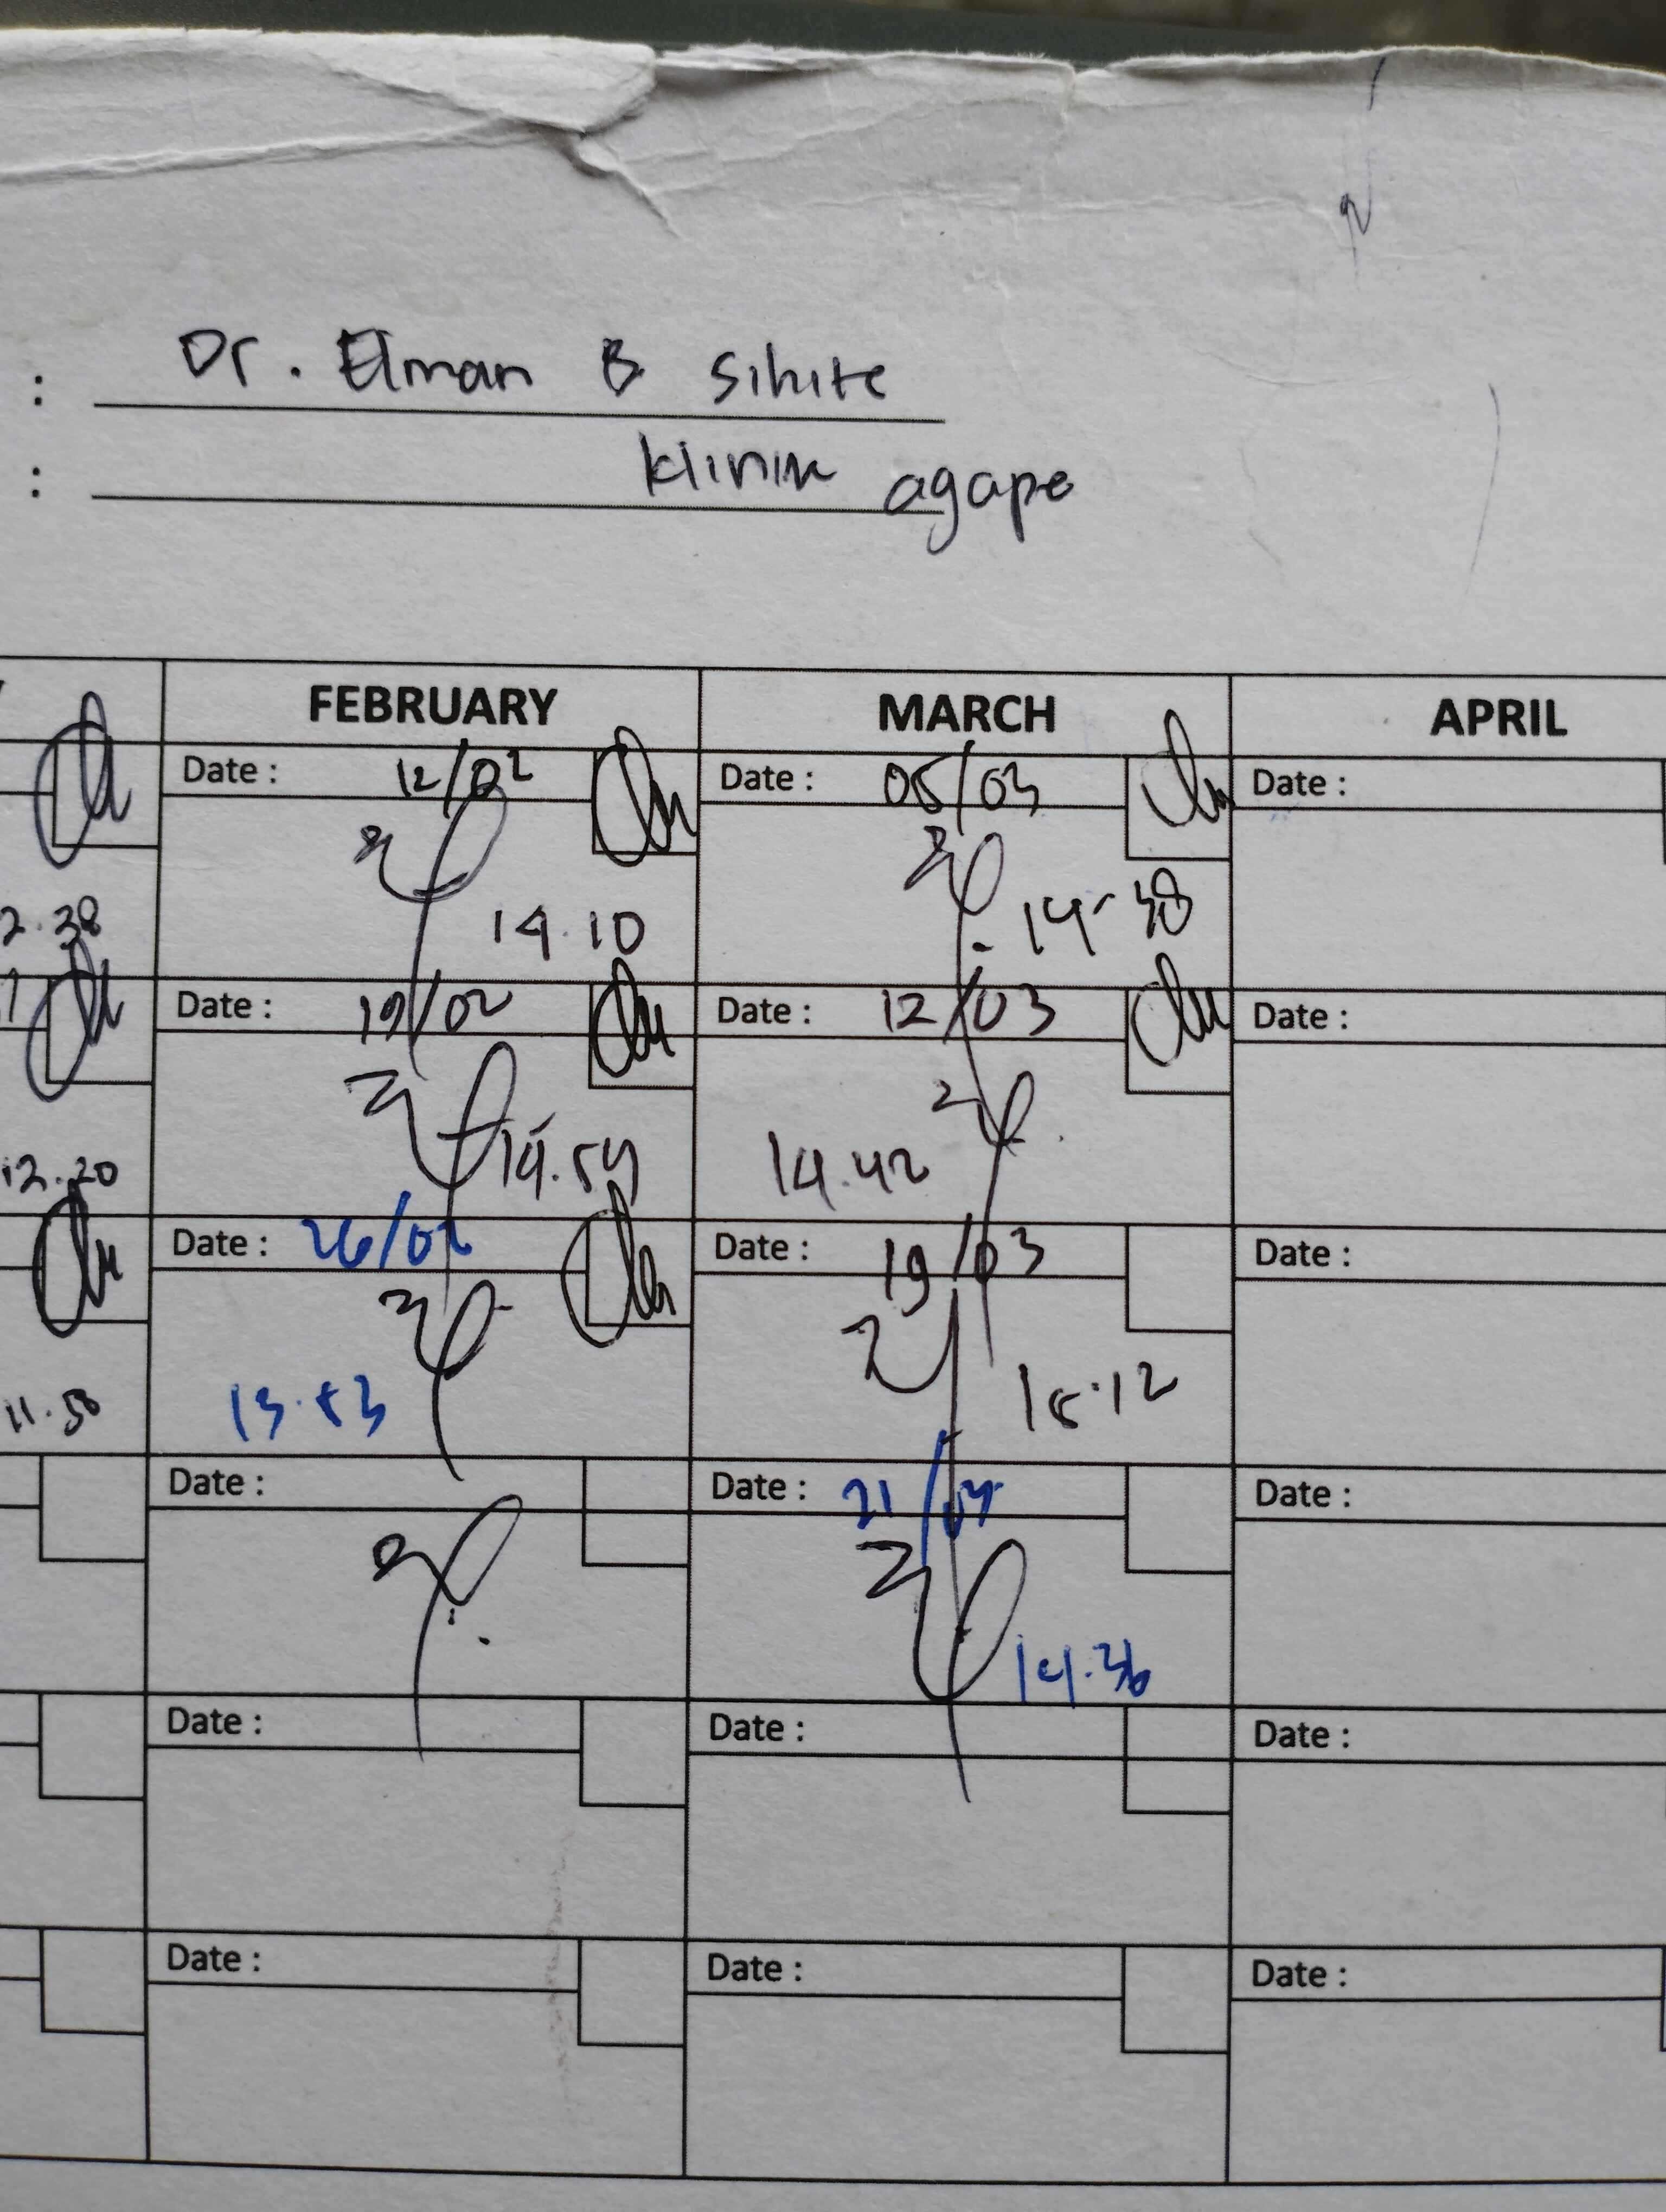 : Dr. Elman B Sihite
: Klinik agape
FEBRUARY MARCH APRIL
Date : 12/02 Date : 05/03 Date :
2.38 14.10 14-38
Date : 19/02 Date : 12/03 Date :
12.20 14.54 14.42
Date : 26/02 Date : 19/03 Date :
11.50 13.53 15.12
Date : Date : 21/ Date :
14.36
Date : Date : Date :
Date : Date : Date :